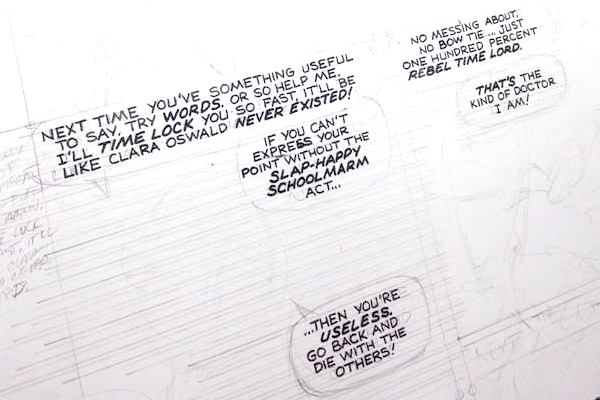 NEXT TIME YOU'VE SOMETHING USEFUL
TO SAY, TRY WORDS. OR SO HELP ME,
I'LL TIME LOCK YOU SO FAST, IT'LL BE
LIKE CLARA OSWALD NEVER EXISTED!
IF YOU CAN'T
EXPRESS YOUR
POINT WITHOUT THE
SLAP-HAPPY
SCHOOLMARM
ACT...
...THEN YOU'RE
USELESS.
GO BACK AND
DIE WITH THE
OTHERS!
NO MESSING ABOUT,
NO BOW TIE... JUST
ONE HUNDRED PERCENT
REBEL TIME LORD.
THAT'S THE
KIND OF DOCTOR
I AM!